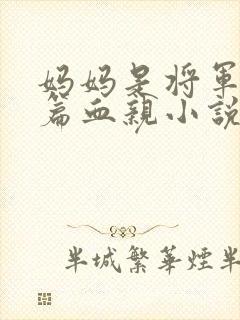 妈妈是将军
篇血親小説
半城繁華煙半